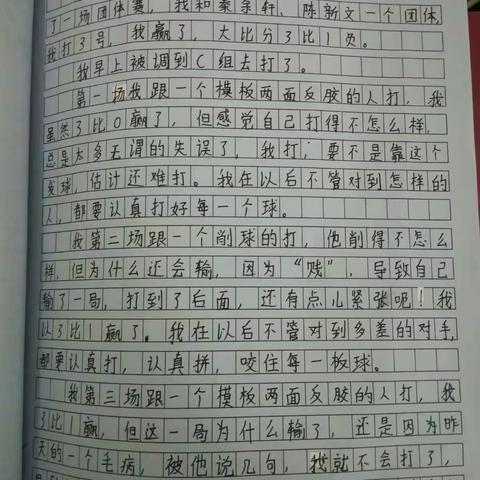 了一场团体赛，我和秦余轩、陈新文一个团体，
我打3号，我赢了，大比分3比1负。
我早上被调到C组去打了。
第一场我跟一个横板两面反胶的人打，我
虽然3比0赢了，但感觉自己打得不怎么样，
总是太多无谓的失误了，我打；要不是靠这个
发球，估计还难打。我在以后不管对到怎样的
人，都要认真打好每一个球。
我第二场跟一个削球的打，他削得不怎么
样，但为什么还会输，因为“贱”，导致自己
输了一局，打到了后面，还有点儿紧张呢！我
以3比1赢了。我在以后不管对到多差的对手，
都要认真打，认真拼，咬住每一板球。
我第三场跟一个横板两面反胶的人打，我
3比1赢，但这一局为什么输了，还是因为昨
天的一个毛病，被他说几句，我就不会打了，